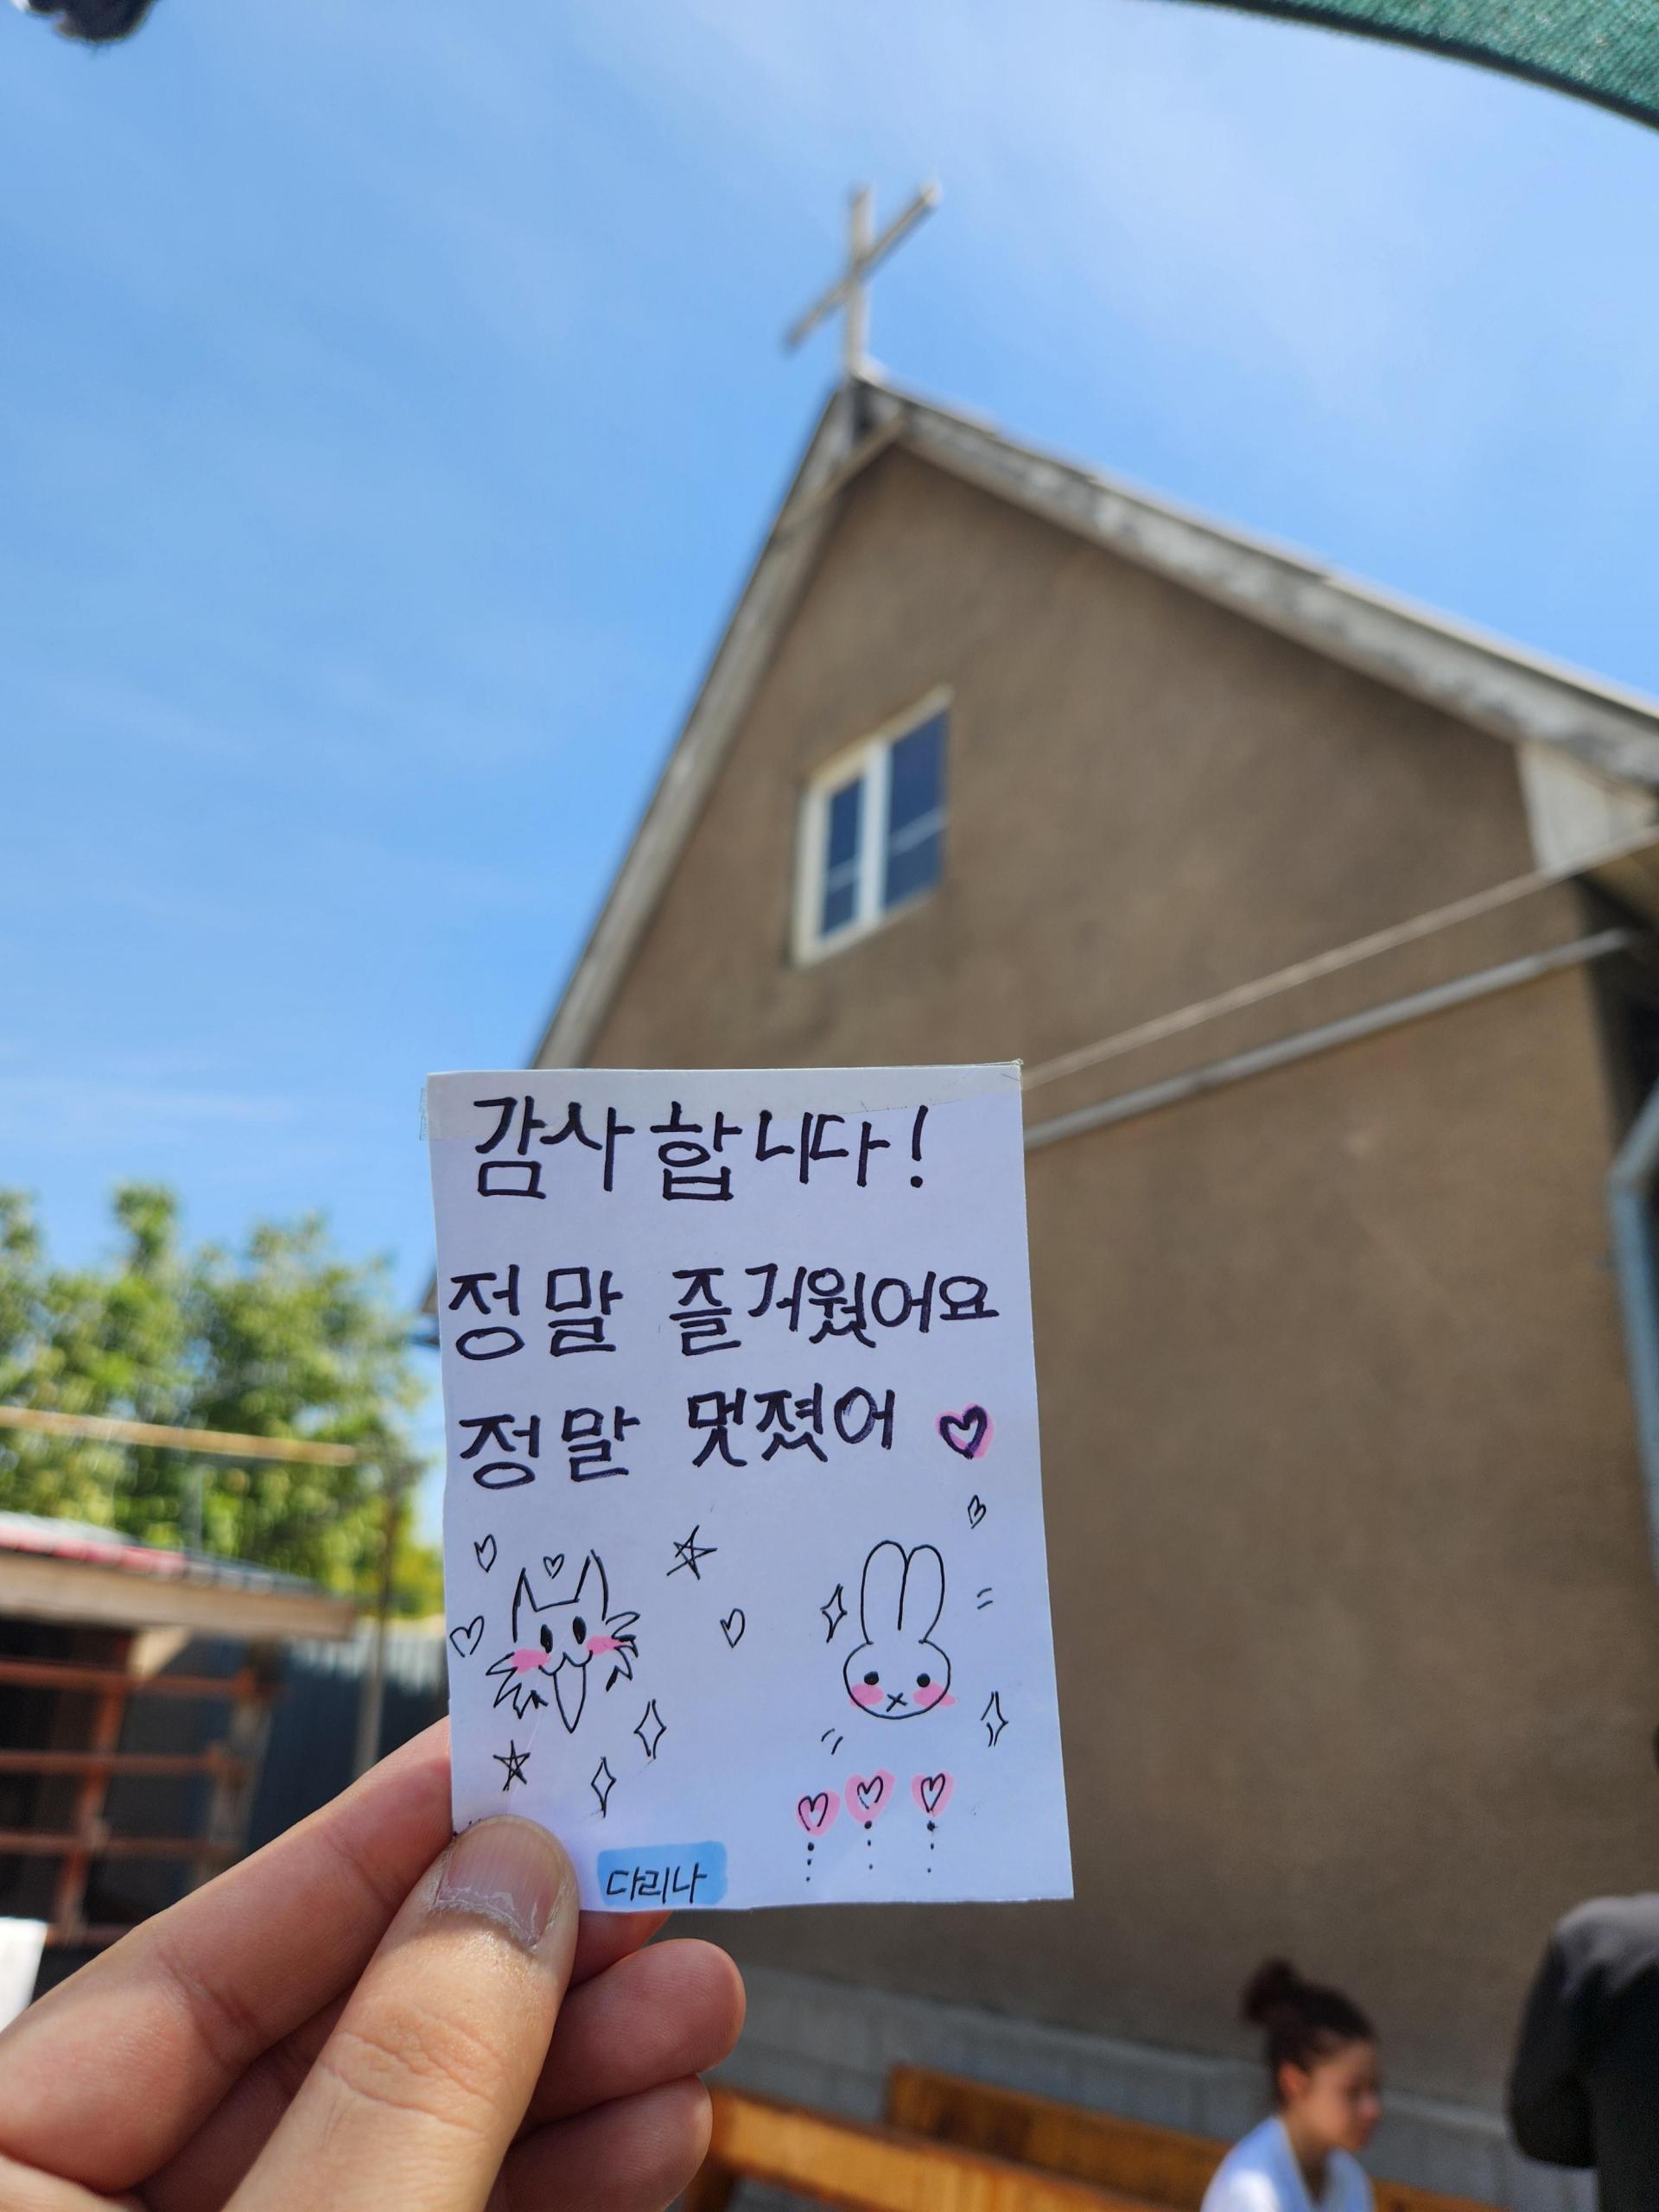 감사합니다!
정말 즐거웠어요
정말 멋졌어
다리나